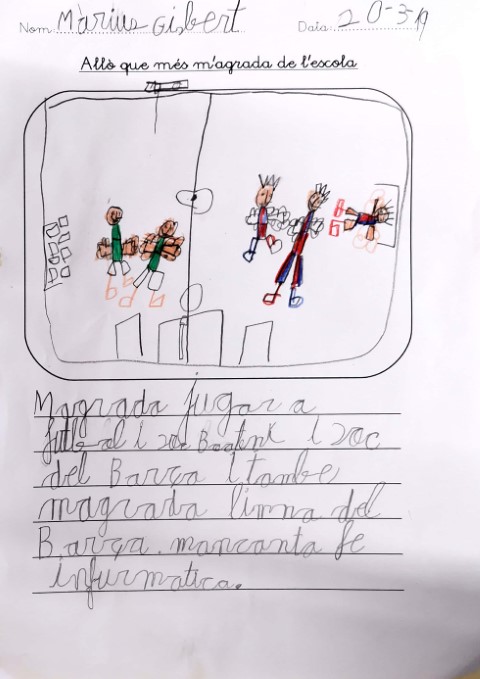 Nom Màrius Gisbert Data 20-3-19
Allò que més m'agrada de l'escola
Magrada jugar a
futbol i zoc i zoc
del Barça i tambe
magrada limna del
Barça. mancanta fe
infurmatica.